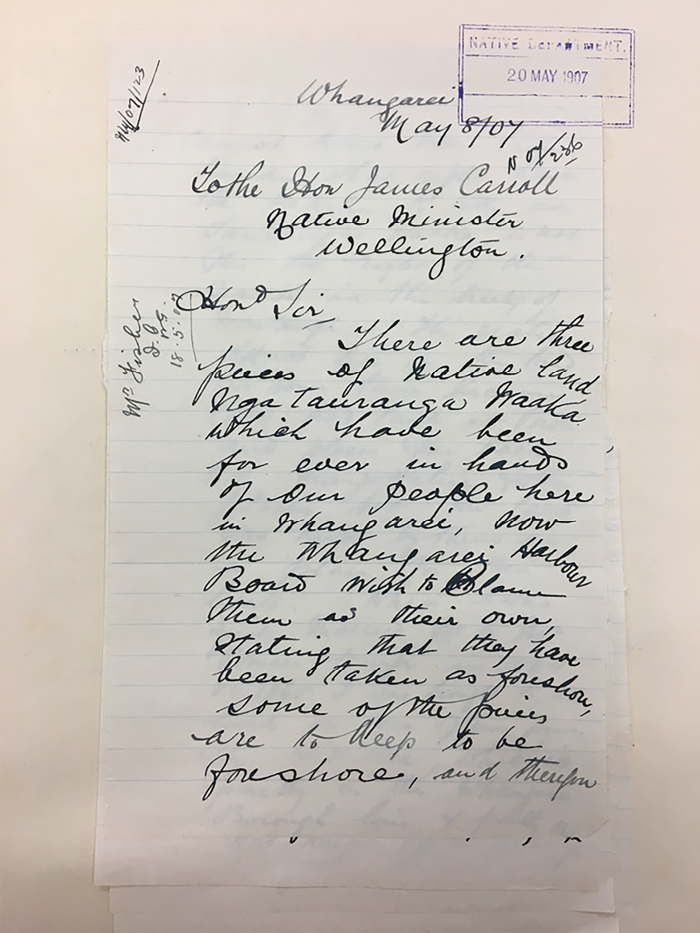 NATIVE DEPARTMENT.
20 MAY 1907
Whangarei
May 8/07
N 07/236
To the Hon James Carroll
Native Minister
Wellington.
Hond Sir,
There are three
pieces of Native land
Nga Tauranga Waaka
which have been
for ever in hands
of our people here
in Whangarei, now
the Whangarei Harbour
Board wish to Clame
them as their own,
stating that they have
been taken as foreshore,
some of the pieces
are to deep to be
foreshore, and therefore
Mr Fisher
18.5.07